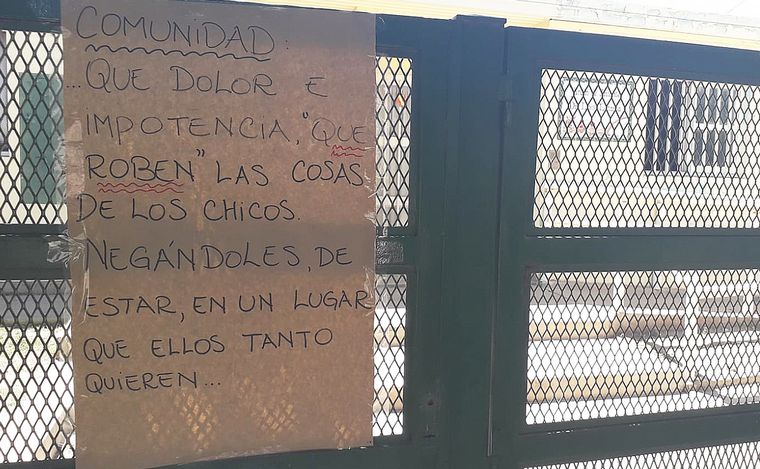 COMUNIDAD:
...QUE DOLOR E
IMPOTENCIA, "QUE
ROBEN" LAS COSAS
DE LOS CHICOS.
NEGÁNDOLES, DE
ESTAR, EN UN LUGAR
QUE ELLOS TANTO
QUIEREN...